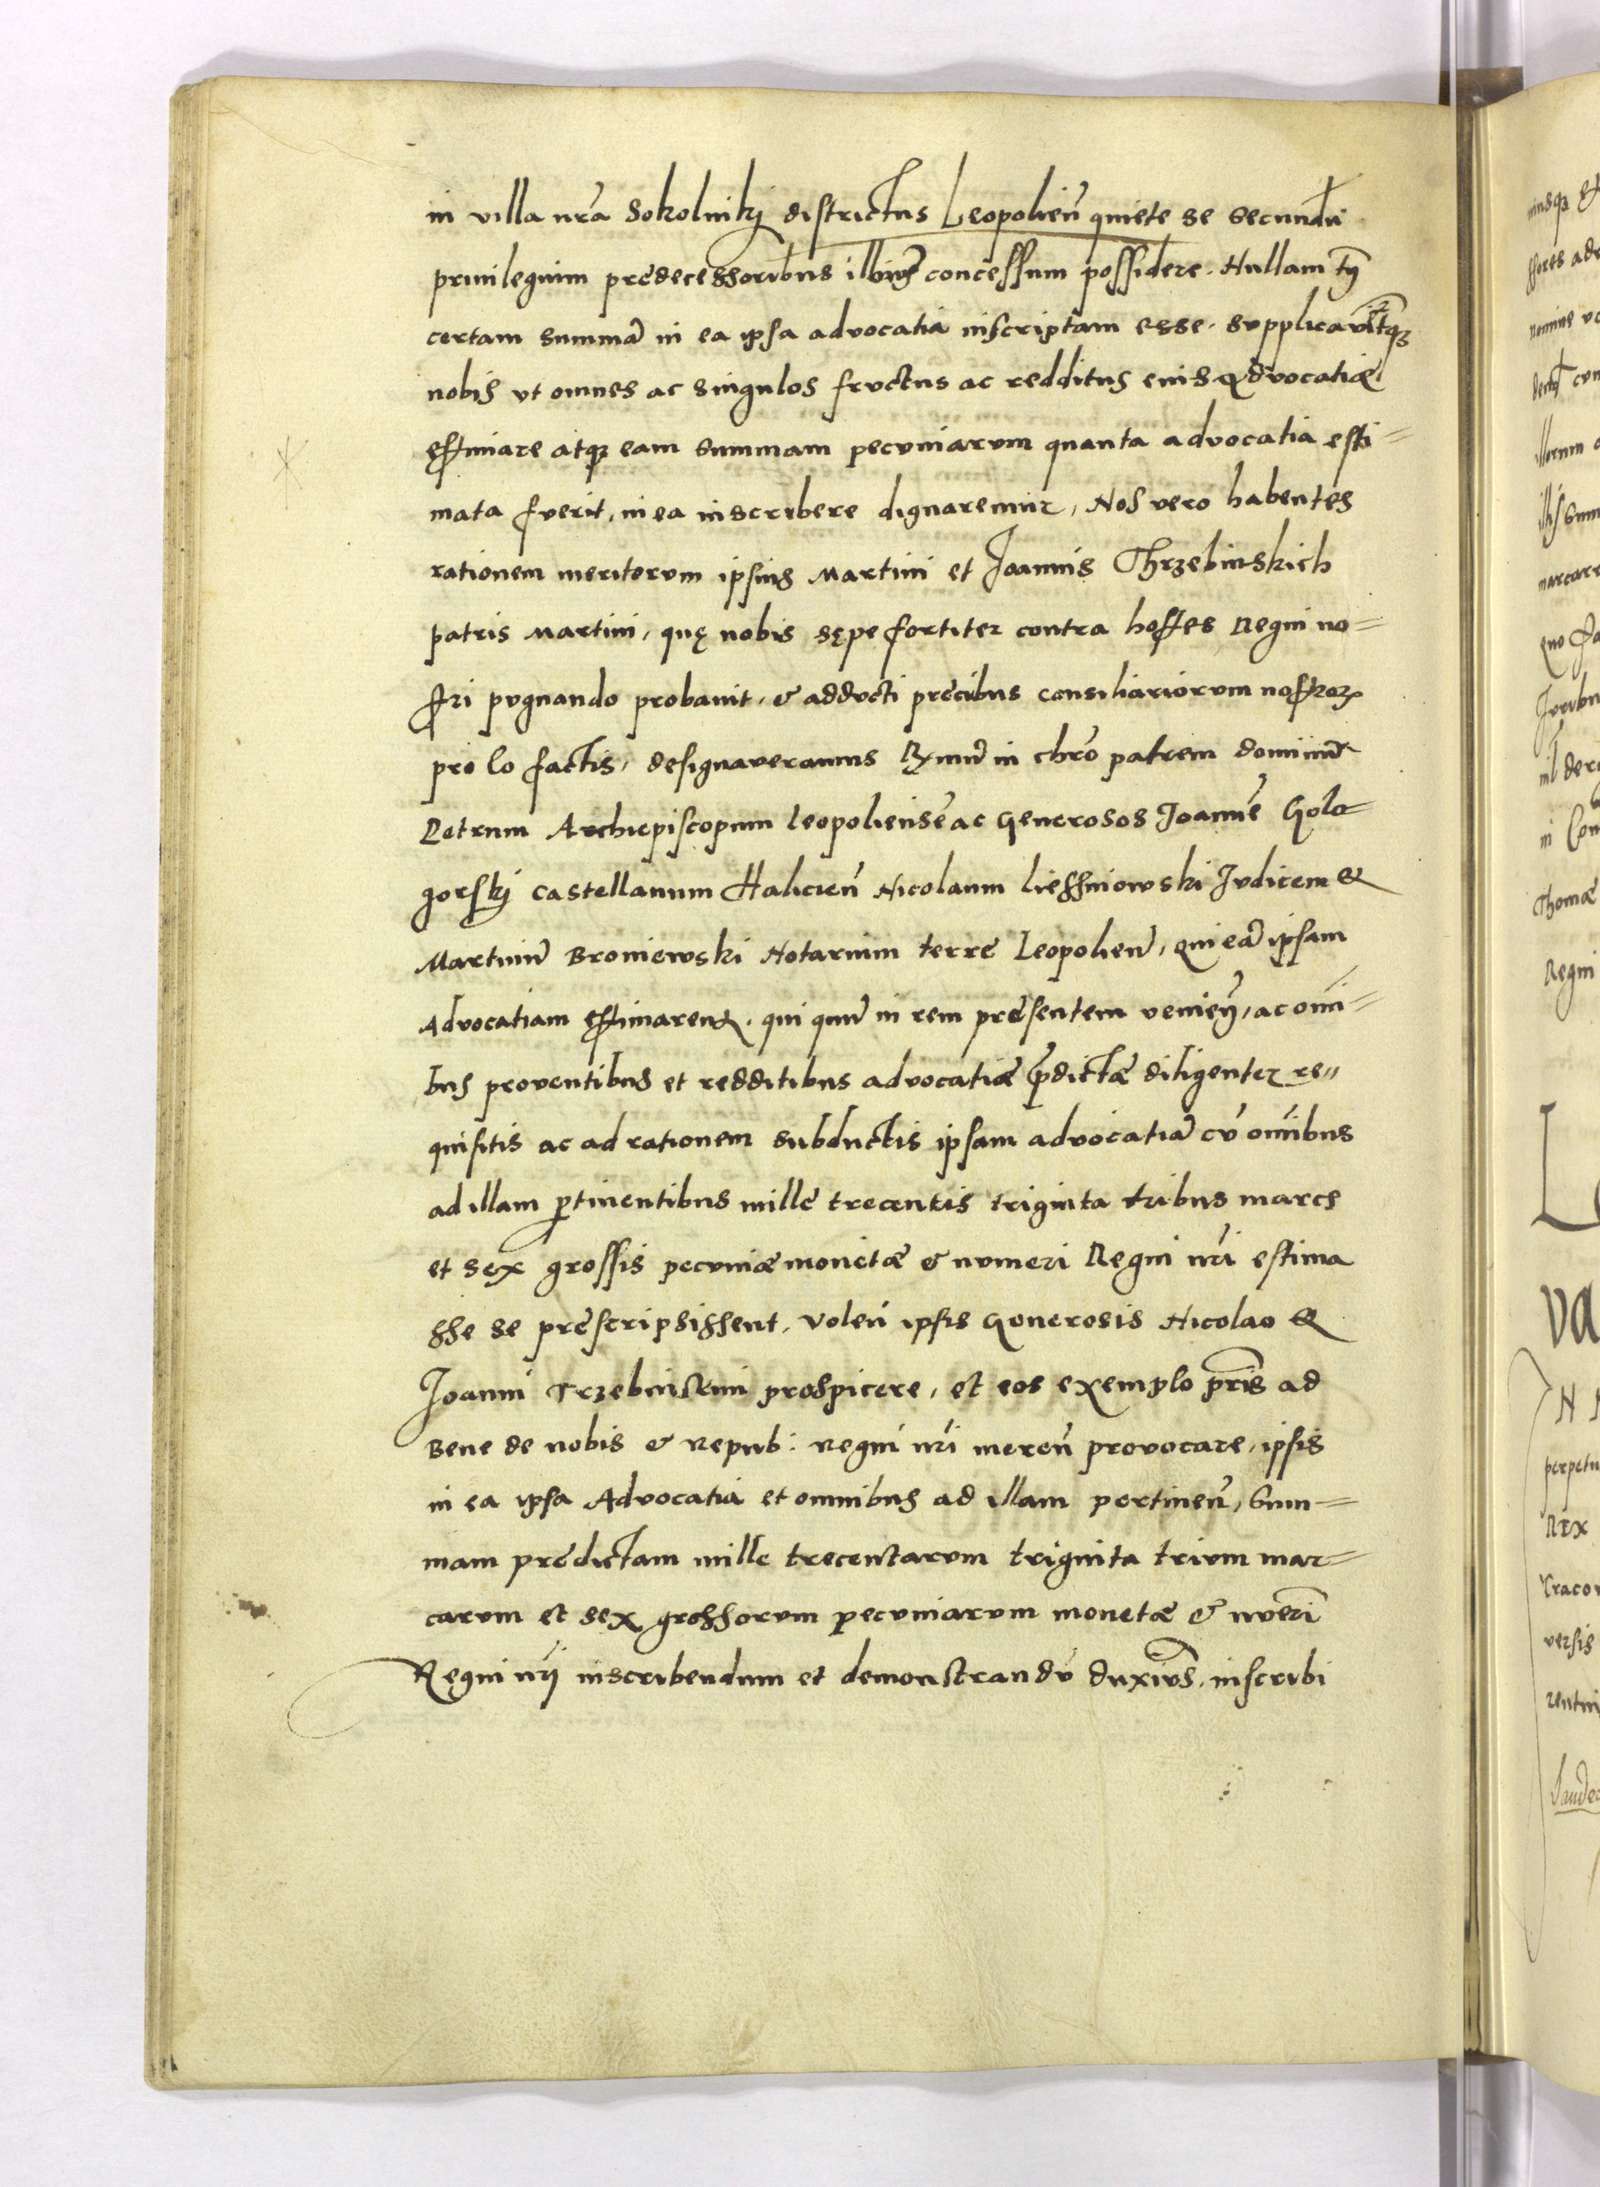 in villa nr̃a Sokolnikj districtus Leopolien̄ quiete se secundū
privilegium predecessoribus illius concessum possidere. Nullam tn̄
certam summā in ea ipsa advocatia inscriptam esse. supplicavitqȝ
nobis vt omnes ac singulos fructus ac redditus eius advocatiæ
estimare atqȝ eam summam pecuniarum quanta advocatia esti=
mata fuerit, in ea inscribere dignaremur, Nos vero habentes
rationem meritorum ipsius Martini et Joannis Thrzebinskich
patris Martini, quę nobis sępe fortiter contra hostes Regni no=
stri pugnando probavit, & adducti precibus consiliariorum nostroꝝ
pro lo factis, designaveramus in chr̃o patrem dominū
Petrum Archiepiscopum leopoliensē ac Generosos Joannē Golo=
gorskj castellanum Halicien̄ Nicolaum liessniowski Judicem &
Martinū Broniewski Notarium terre Leopolien̄, qui eā ipsam
Advocatiam estimarent. qui quū in rem presentem, ac omi=
bus proventibus et redditibus advocatiæ p̄dictæ diligenter re=
quisitis ac ad rationem subductis ipsam advocatiā cū om̄ibus
ad illam ꝑtinentibus mille trecentis triginta tribus marcs
et sex grossis pecuniæ monetæ & numeri Regni nr̃i estima
sse se prescripsissent. volen̄ ipsis Generosis Nicolao &
Joanni Trzebinskim prospicere, et eos exemplo pr̃is ad
Bene de nobis & Repub: Regni nr̃i meren̄ provocare, ipsis
in ea ipsa Advocatia et omnibus ad illam pertinen̄, Sum=
mam predictam mille trecentarum triginta trium mar=
carum et sex grossorum pecuniarum monetæ & nūeri
Regni nr̃j inscribendum et demonstrandū duxim9, inscribi